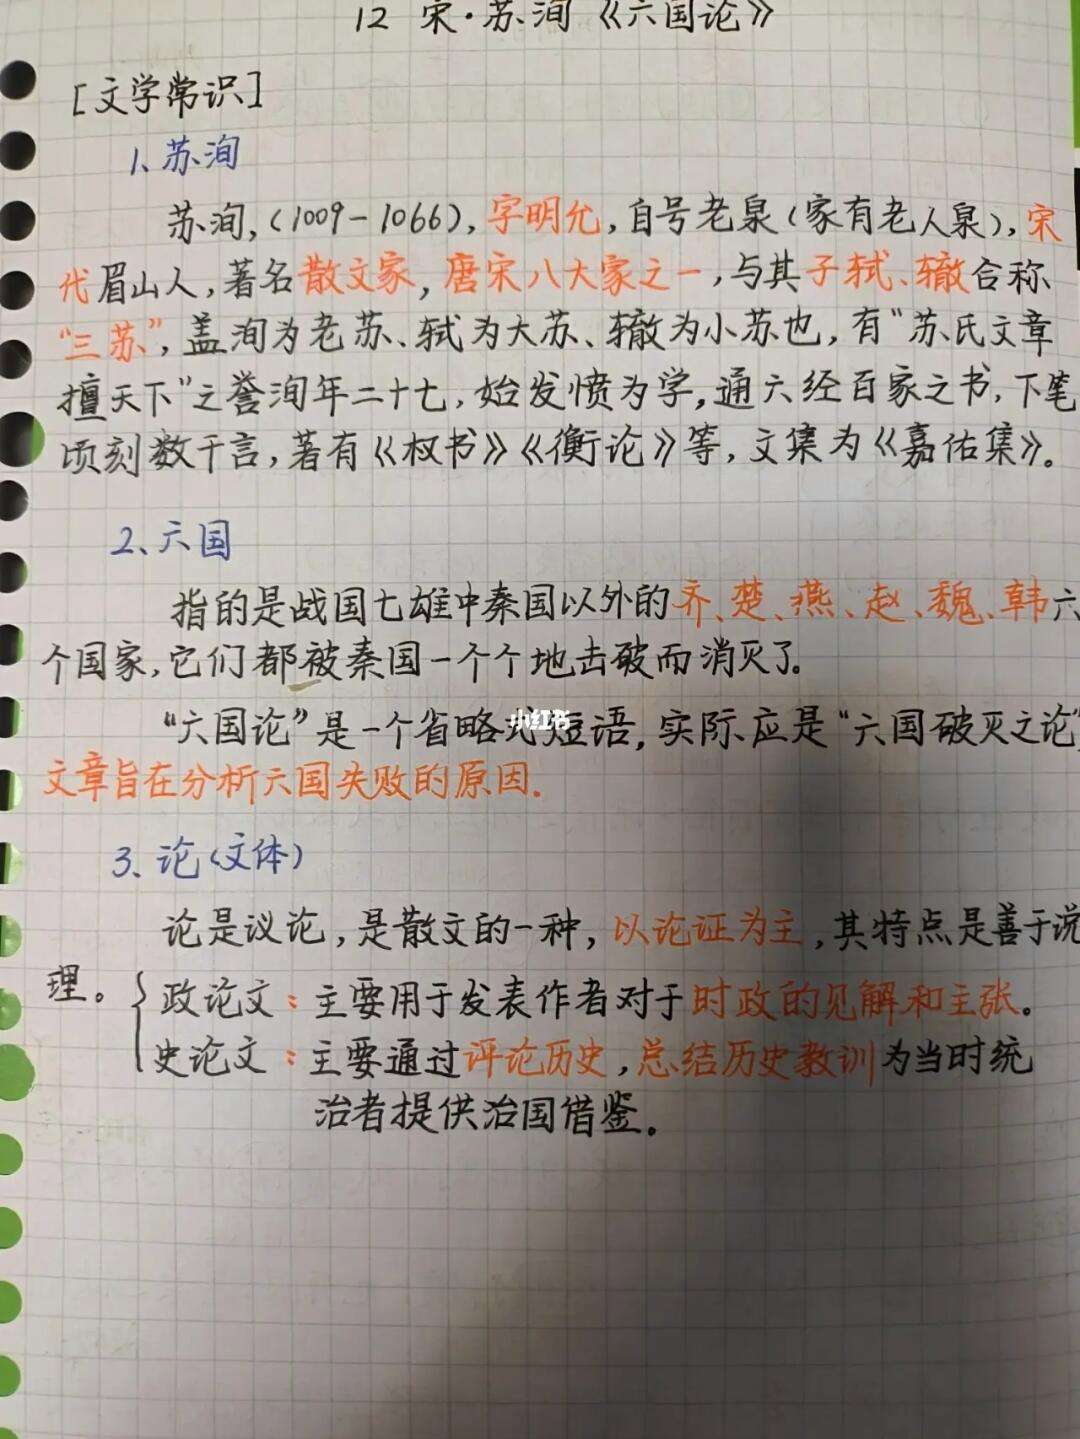 12 宋·苏洵《六国论》
[文学常识]
1、苏洵
苏洵,(1009-1066),字明允,自号老泉(家有老人泉),宋
代眉山人,著名散文家,唐宋八大家之一,与其子轼、辙合称
“三苏”,盖洵为老苏、轼为大苏、辙为小苏也,有“苏氏文章
擅天下”之誉洵年二十七,始发愤为学,通六经百家之书,下笔
顷刻数千言,著有《权书》《衡论》等,文集为《嘉佑集》。
2、六国
指的是战国七雄中秦国以外的齐、楚、燕、赵、魏、韩六
个国家,它们都被秦国一个个地击破而消灭了.
“六国论”是一个省略式短语,实际应是“六国破灭之论”
小红书
文章旨在分析六国失败的原因.
3、论(文体)
论是议论,是散文的一种,以论证为主,其特点是善于说
理。
政论文:主要用于发表作者对于时政的见解和主张。
史论文:主要通过评论历史,总结历史教训为当时统
治者提供治国借鉴。